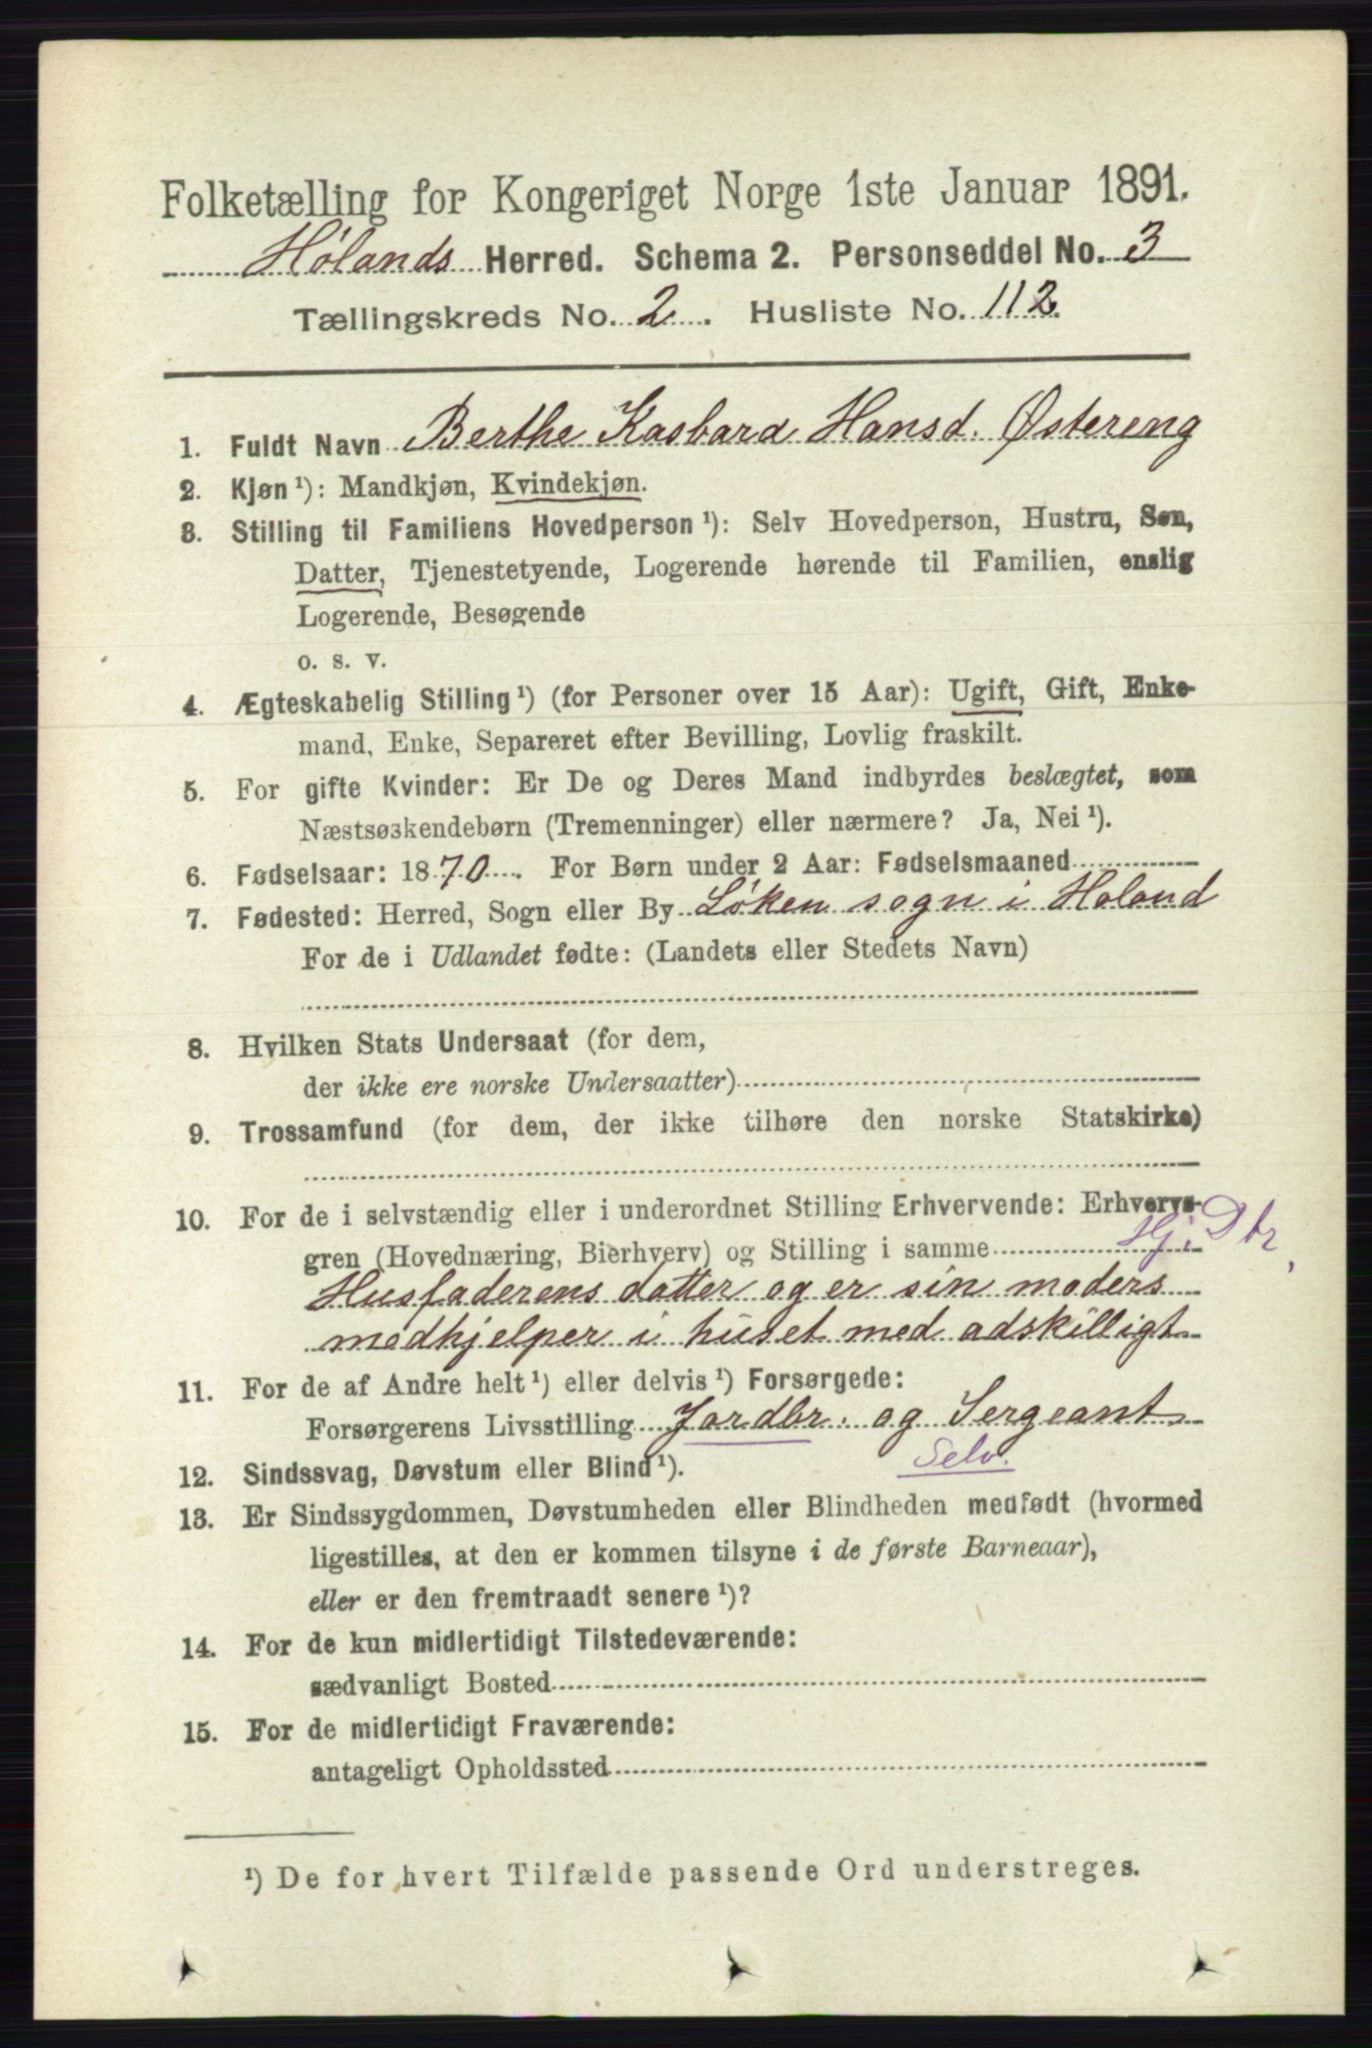 Folketælling for Kongeriget Norge 1ste Januar 1891.
Hølands Herred. Schema 2. Personseddel No. 3
Tællingskreds No. 2. Husliste No. 112.
1. Fuldt Navn Berthe Kasbara Hansd. Østereng
2. Kjøn ¹): Mandkjøn, Kvindekjøn.
3. Stilling til Familiens Hovedperson ¹): Selv Hovedperson, Hustru, Søn,
Datter, Tjenestetyende, Logerende hørende til Familien, enslig
Logerende, Besøgende
o. s. v.
4. Ægteskabelig Stilling ¹) (for Personer over 15 Aar): Ugift, Gift, Enke-
mand, Enke, Separeret efter Bevilling, Lovlig fraskilt.
5. For gifte Kvinder: Er De og Deres Mand indbyrdes beslægtet, som
Næstsøskendebørn (Tremenninger) eller nærmere? Ja, Nei ¹).
6. Fødselsaar: 1870. For Børn under 2 Aar: Fødselsmaaned
7. Fødested: Herred, Sogn eller By Løken sogn i Høland
For de i Udlandet fødte: (Landets eller Stedets Navn)
8. Hvilken Stats Undersaat (for dem,
der ikke ere norske Undersaatter)
9. Trossamfund (for dem, der ikke tilhøre den norske Statskirke)
10. For de i selvstændig eller i underordnet Stilling Erhvervende: Erhvervs-
gren (Hovednæring, Bierhverv) og Stilling i samme Hj. Dtr,
Husfaderens datter og er sin moders
medhjelper i huset med adskilligt
11. For de af Andre helt ¹) eller delvis ¹) Forsørgede:
Forsørgerens Livsstilling Jordbr. og Sergeant
Selv.
12. Sindssvag, Døvstum eller Blind ¹).
13. Er Sindssygdommen, Døvstumheden eller Blindheden medfødt (hvormed
ligestilles, at den er kommen tilsyne i de første Barneaar),
eller er den fremtraadt senere ¹)?
14. For de kun midlertidigt Tilstedeværende:
sædvanligt Bosted
15. For de midlertidigt Fraværende:
antageligt Opholdssted
¹) De for hvert Tilfælde passende Ord understreges.